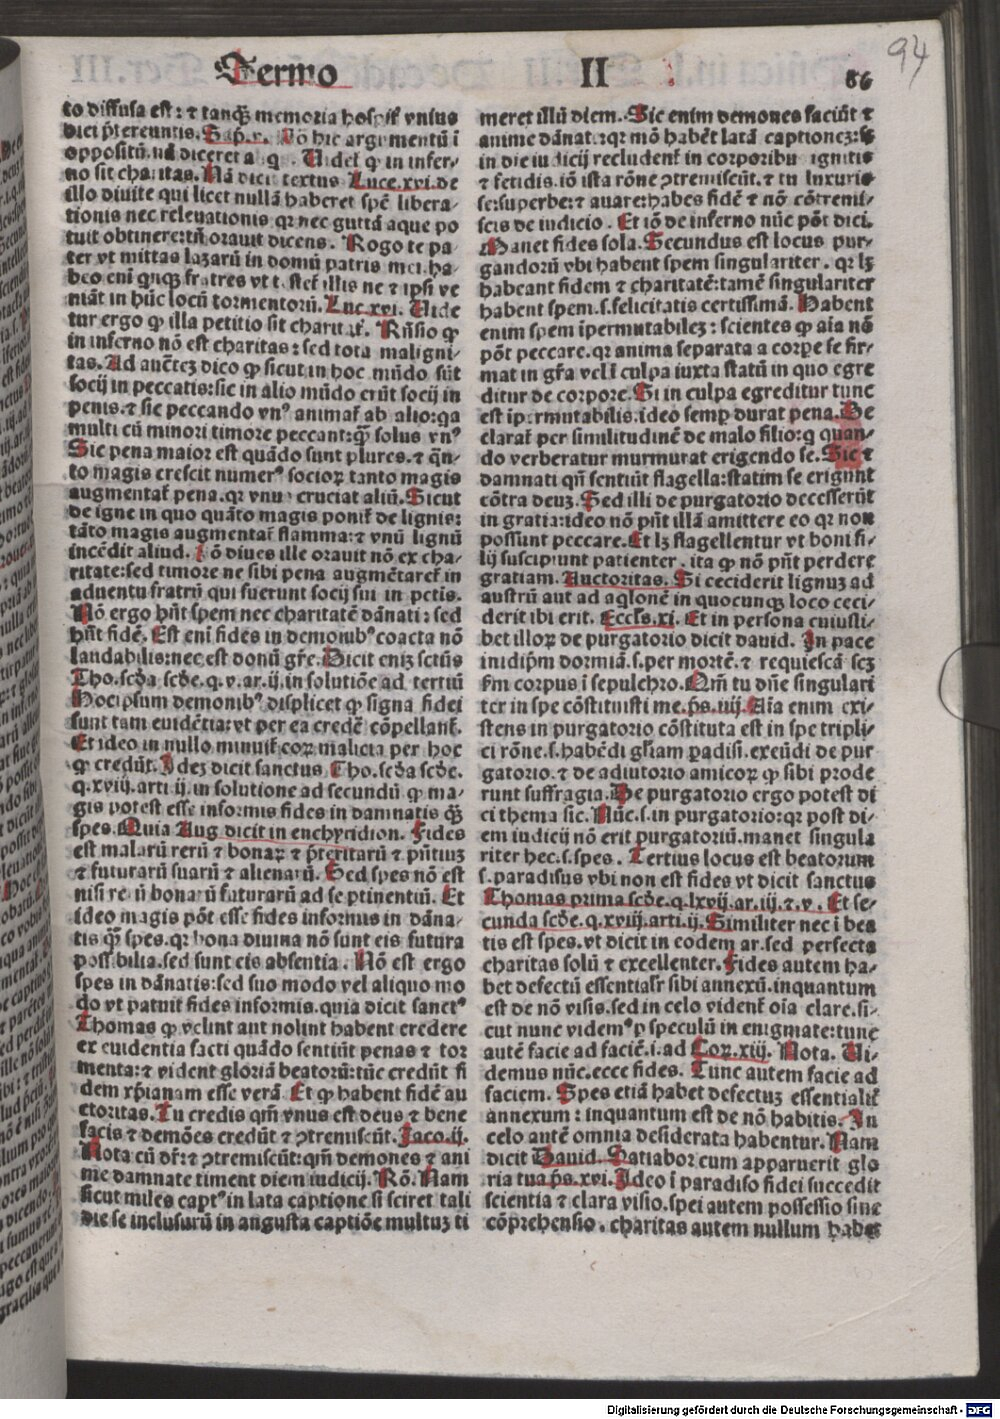 Sermo II 86
94
to diffusa est: ⁊ tanq̄ memoria hospit̄ vnius
diei p̄tereuntis. Sap̄. v. Cō hic argumentū ī
oppositū. nā diceret aq̄. Videt̄ ꝙ in infer-
no sit charitas. Nā dicit textus Luce. xvi. de
illo diuite qui licet nullā haberet spē libera-
tionis nec releuationis qr nec guttā aque po
tuit obtinere: tn̄ orauit dicens. Rogo te pa-
ter vt mittas lazarū in domū patris mei. ha-
beo enī qnqꝫ fratres vt testet̄ illis ne ⁊ ipsi ve
niāt in hūc locū tormentorū. Luc. xvi. Vide
tur ergo ꝙ illa petitio sit charitat̄. Rn̄sio ꝙ
in inferno nō est charitas: sed tota maligni-
tas. Ad auc̄tez dico ꝙ sicut in hoc mūdo sūt
socij in peccatis: sic in alio mūdo erūt socij in
penis. ⁊ sic peccando vn⁹ animat̄ ab alio: qa
multi cū minori timore peccant: q̄ꝫ solus vn⁹
Sic pena maior est quādo sunt plures. ⁊ q̄n-
to magis crescit numer⁹ socioꝝ tanto magis
augmentat̄ pena. qr vnus cruciat aliū. Sicut
de igne in quo quāto magis ponit̄ de lignis:
tāto magis augmentat̄ flamma: ⁊ vnū lignū
incēdit aliud. Iō diues ille orauit nō ex cha-
ritate: sed timore ne sibi pena augmētaret̄ in
aduentu fratrū qui fuerunt socij sui in pctis.
Nō ergo hn̄t spem nec charitatē dānati: sed
hn̄t fidē. Est enī fides in demonib⁹ coacta nō
laudabilis: nec est donū gr̄e. Dicit eniꝫ sctūs
Tho. scd̄a scd̄e. q. v. ar. ij. in solutiōe ad tertiū
Hoc ipsum demonib⁹ displicet ꝙ signa fidei
sunt tam euidētia: vt per ea credē cōpellant̄.
Et ideo in nullo minuit̄ coꝝ malicia per hoc
ꝙ credūt. Idez dicit sanctus Tho. scd̄a scd̄e.
q. xviij. arti. ij. in solutione ad secundū ꝙ ma-
gis potest esse informis fides in damnatis q̄ꝫ
spes. Quia Aug. dicit in enchyridion. Fides
est malarū rerū ⁊ bonaꝝ ⁊ p̄teritarū ⁊ pn̄tiuꝫ
⁊ futurarū suarū ⁊ alienarū. Sed spes nō est
nisi rerū bonarū futurarū ad se ꝑtinentiū. Et
ideo magis pōt esse fides informis in dāna-
tis q̄ꝫ spes. qr bona diuina nō sunt eis futura
possibilia. sed sunt eis absentia. Nō est ergo
spes in dānatis: sed suo modo vel aliquo mo
do vt patuit fides informis. quia dicit sanct⁹
Thomas ꝙ velint aut nolint habent credere
ex euidentia facti quādo sentiūt penas ⁊ tor
menta: ⁊ vident gloriā beatorū: tūc credūt fi
dem xp̄ianam esse verā. Et ꝙ habent fidē au
ctoritas. Tu credis qm̄ vnus est deus ⁊ bene
facis ⁊ demōes credūt ⁊ ꝯtremiscūt. Jaco. ij.
Nota cū dr̄: ⁊ ꝯtremiscūt: qm̄ demones ⁊ ani
me damnate timent diem iudicij. Rō. Nam
sicut miles capt⁹ in lata captione si sciret tali
die se inclusurū in angusta captiōe multuꝫ ti
meret illū diem. Sic enim demones faciūt ⁊
anime dānate: qr mō habēt latā captioneꝫ: s
in die iudicij recludent̄ in corporibus ignitis
⁊ fetidis. iō ista rōne ꝯtremiscūt. ⁊ tu luxurio
se: superbe: ⁊ auare: habes fidē ⁊ nō cōtremi-
scis de iudicio. Et iō de inferno nūc pōt dici.
Manet fides sola. Secundus est locus pur-
gandorū vbi habent spem singulariter. qr lꝫ
habeant fidem ⁊ charitatē: tamē singulariter
habent spem. s. felicitatis certissimā. Habent
enim spem īpermutabileꝫ: scientes ꝙ aīa nō
pōt peccare. qr anima separata a corpe se fir-
mat in gr̄a vel ī culpa iuxta statū in quo egre
ditur de corpore. Si in culpa egreditur tunc
est ipermutabilis. ideo semꝑ durat pena. De
clarat̄ per similitudinē de malo filio: q quan-
do verberatur murmurat erigendo se. Sic ⁊
damnati qn̄ sentiūt flagella: statim se erigunt
cōtra deuꝫ. Sed illi de purgatorio decesserūt
in gratia: ideo nō pn̄t illā amittere eo qr non
possunt peccare. Et lꝫ flagellentur vt boni fi-
lij suscipiunt patienter. ita ꝙ nō pn̄t perdere
gratiam. Auctoritas. Si ceciderit lignuꝫ ad
austrū aut ad aqlonē in quocunqꝫ loco ceci-
derit ibi erit. Eccl̄s. xi. Et in persona cuiusli-
bet illoꝝ de purgatorio dicit dauid. In pace
in idip̄m dormiā. s. per mortē. ⁊ requiescā scꝫ
fm corpus ī sepulchro. Qm̄ tu dn̄e singulari
ter in spe cōstituisti me. ps̄. iiij. Aīa enim exi-
stens in purgatorio cōstituta est in spe tripli-
ci rōne. s. habēdi gl̄iam ꝑadisi. exeūdi de pur
gatorio. ⁊ de adiutorio amicoꝝ ꝙ sibi prode
runt suffragia. De purgatorio ergo potest di
ci thema sic. Nūc. s. in purgatorio: qr post di-
em iudicij nō erit purgatoriū. manet singula
riter hec. s. spes. Tertius locus est beatorum
s. paradisus vbi non est fides vt dicit sanctus
Thomas prima scd̄e. q. lxvij. ar. iij. ⁊. v. Et se-
cunda scd̄e. q. xviij. arti. ij. Similiter nec ī bea
tis est spes. vt dicit in eodem ar. sed perfecta
charitas solū ⁊ excellenter. Fides autem ha-
bet defectū essentialr̄ sibi annexū. inquantum
est de nō visis. sed in celo vident̄ oīa clare. si-
cut nunc videm⁹ ꝑ speculū in enigmate: tunc
autē facie ad faciē. i. ad Coꝝ. xiij. Nota. Vi-
demus nūc. ecce fides. Tunc autem facie ad
faciem. Spes etiā habet defectuꝫ essentialit̄
annexum: inquantum est de nō habitis. In
celo autē omnia desiderata habentur. Nam
dicit Dauid. Satiabor cum apparuerit glo
ria tua ps̄. xvi. Ideo ī paradiso fidei succedit
scientia ⁊ clara visio. spei autem possessio sine
cōprehensio. charitas autem nullum habet
Digitalisierung gefördert durch die Deutsche Forschungsgemeinschaft - DFG